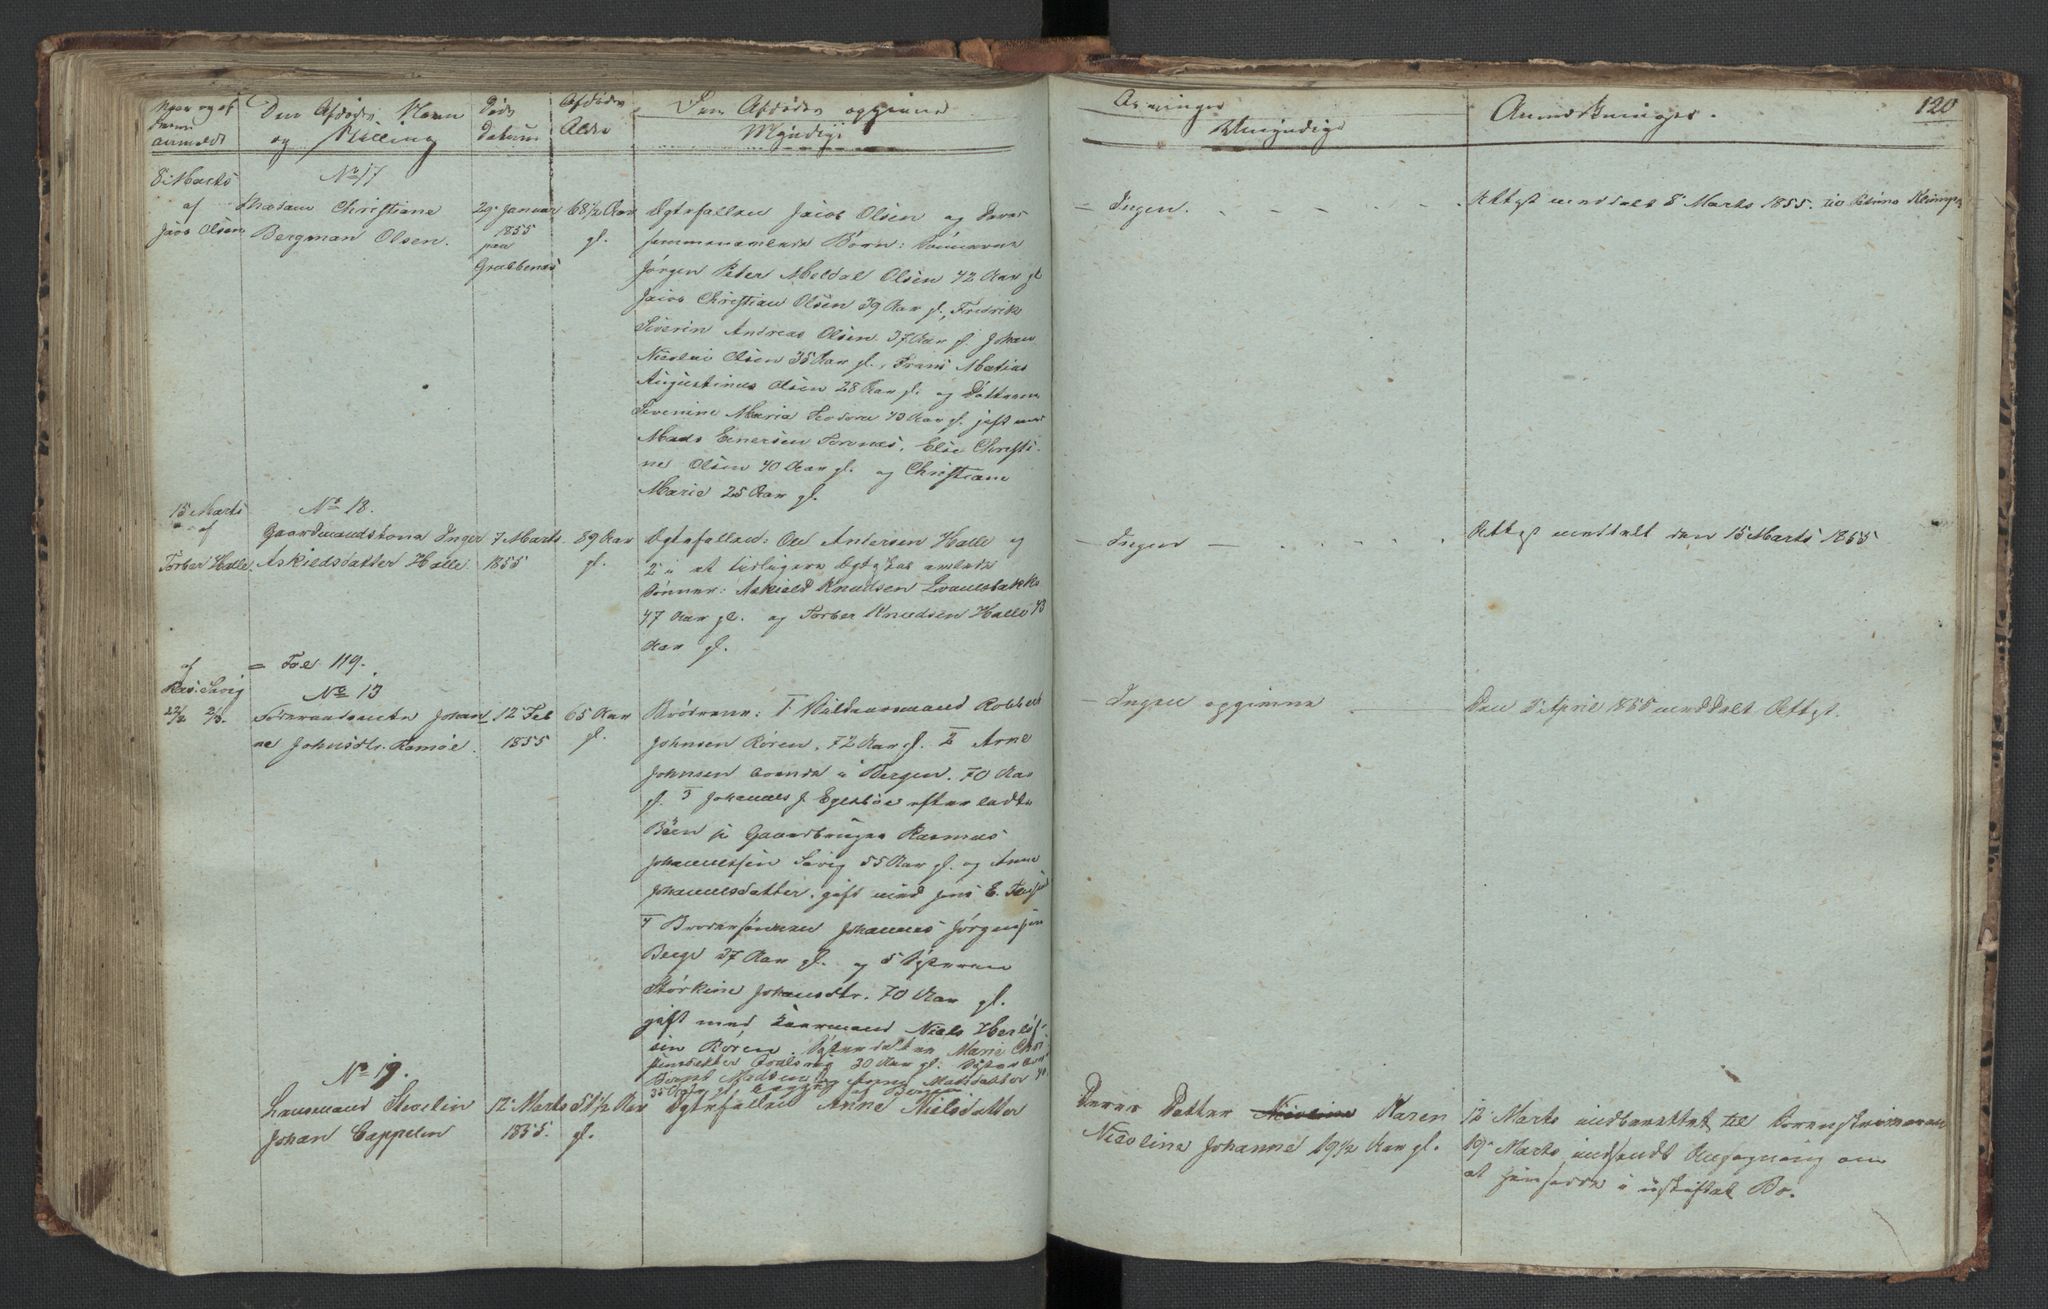 Naar og af
hvem
anmeldt
Den Afdødes Navn
og Stilling
Døds
Datum
Afdødes
Alder
Den Afdødes opgivne
Myndige
Arvinger
Umyndige
Anmærkninger.
120
8 Marts
af
Jacob Olsen
No 17
Madam Christiane
Bergman Olsen.
29 Januar
1855
paa
Grabbenæs
68 1/2 Aar
gl.
Ægtefællen Jacob Olsen og deres
sammenavlede Børn: Sønnerne
Jørgen Peter Meldal Olsen 42 Aar gl
Jacob Christian Olsen 39 Aar gl., Fredrik
Severin Andreas Olsen 37 Aar gl. Johan
Nicolai Olsen 35 Aar gl., Frans Matias
Augustinus Olsen 28 Aar gl. og Døttrene
Severine Maria Teodora 43 Aar gl. gift med
Mads Einersen Tornæs, Else Christi-
ne Olsen 40 Aar gl. og Christiane
Marie 25 Aar gl.
Ingen.
Attest meddelt 8 Marts 1855. til
15 Marts
af
Torber Halle
No 18.
Gaardmandskona Inger
Askieldsdatter Halle.
7 Marts
1855
89 Aar
gl.
Ægtefællen: Ole Andersen Halle og
2 i et tidligere Ægteskab avlede
Sønner: Askield Knudsen
47 Aar gl. og Torber Knudsen Halle 43
Aar gl.
Ingen
Attest meddelt den 15 Marts 1855
af
Ras: Sørvig
22/2 2/3.
= Fol 119.
No 13
Føderaadsenke Johan-
ne Johnsdtr. Ramøe.
12 Feb
1855
65 Aar
gl.
Brødrene: 1 Huusmand Robbert
Johnsen Røren, 72 Aar gl. 2 Arne
Johnsen boende i Bergen. 70 Aar
gl. 3 Johannes J. Egesbøe efterladte
Børn: Gaardbruger Rasmus
Johannessen Sørvig 55 Aar gl. og Anne
Johannesdatter, gift med Jens E.
4 Brodersønnen Johannes Jørgensen
Berge 37 Aar gl. og 5 Søsteren
Størkine Johnsdtr. 70 Aar gl.
gift med Kaarmand Niels
Røren. Søsterdatter Marie
30 Aar gl.
Bernt Madsen og Anne Madsdatter 40.
35 Aar gl.
Ingen opgivne
Den 3 April 1855 meddelt Attest.
No 19.
Lensmand Stevelin
Johan Cappelen
12 Marts
1855.
51 1/2 Aar
gl.
Ægtefællen Anne Nielsdatter
Deres Datter Karen
Nicoline Johanne 19 1/2 Aar gl.
12 Marts indberettet til Sorenskriveren
19 Marts indsendt Ansøgning om
at hensidde i uskiftet Bo.